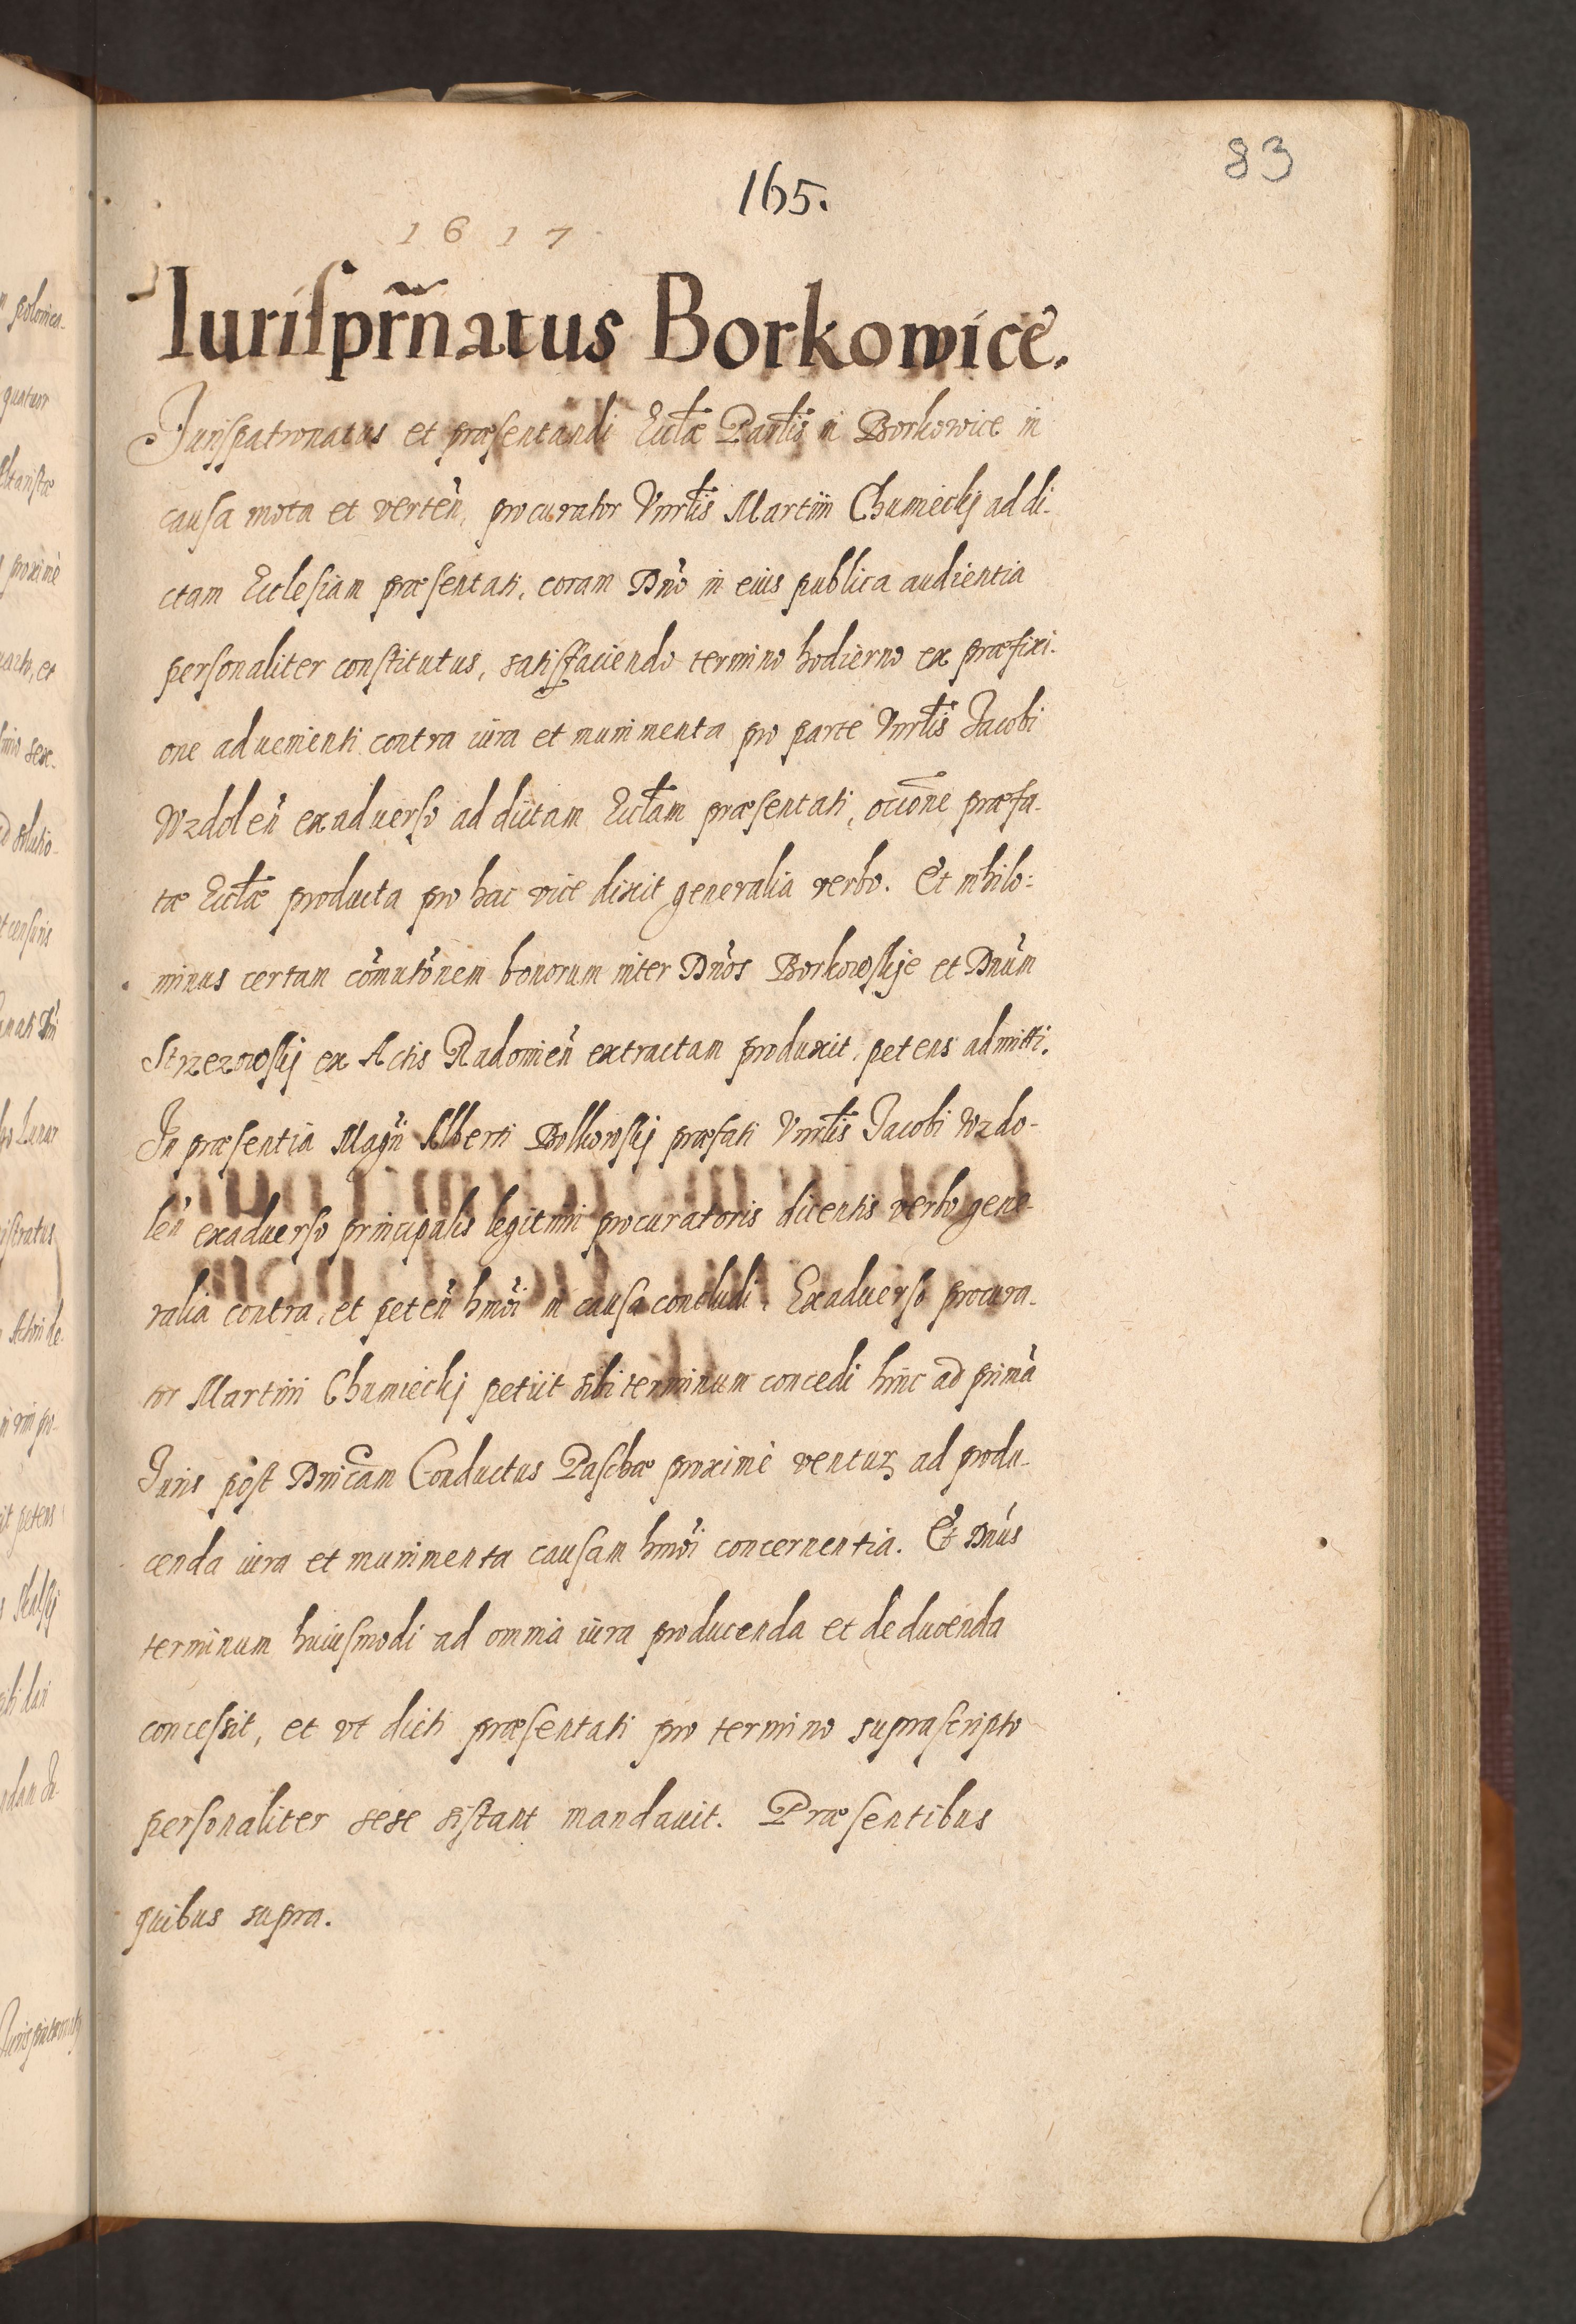 83
165.
1617
Iurisprñatus Borkowice.
Jurispatronatus et præsentandi Ecctæ Parłis in Borkowice in
causa mota et verteñ, procurator Vnrłis Martini Chumiecky addi-
ctam Ecclesiam præsentati, coram Dño in eius publica audientia
personaliter constitutus, satisfaciendo termino hodierno ex præfixi-
one aduenienti contra iura et munimenta pro parte Vnrłis Jacobi
Wzdoleñ exaduerso ad dictam Ecctam præsentati, occōne præfa-
tæ Ecctæ producta pro hac vice dixit generalia verbo. Et nihilo:
minus certam cōmutōnem bonorum inter Dños Borkowskje et Dñum
Strzezowskj ex Actis Radomieñ extractam produxit, petens admitti.
In præsentia Magñ Alberti Bolkowskj præfati Vnrłis Jacobi Wzdo-
leñ exaduerso principalis legitimi procuratoris dicentis verbo gene-
ralia contra, et peteñ hmõi in causa concludi. Exaduerso procura-
tor Martini Chumieckj petiit sibi terminum concedi hinc ad primã
Juris post Dnicam Conductus Paschæ proximè ventuꝝ ad produ-
cenda iura et munimenta causam hmõi concernentia. Et Dñus
terminum huiusmodi ad omnia iura producenda et deducenda
concessit, et vt dicti præsentati pro termino suprascripto
personaliter sese sistant mandauit. Præsentibus
quibus supra.